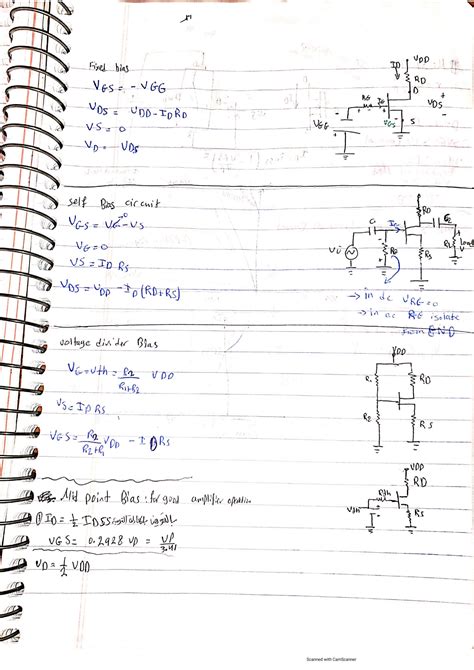 Fixed bias
VGS = - VGG
VDS = VDD - ID RD
VS = 0
VD = VDS
ID
VDD
RD
D
RG
IG
VDS
VGS
S
VGG
self Bias circuit
VGS = VG - VS
VG = 0
VS = ID RS
VDS = VDD - ID (RD+RS)
RD
C2
C1
RL
load
RG
RS
→ in dc VRG = 0
→ in ac RG isolate
from GND
voltage divider Bias
VG = Vth = R2 / R1+R2 VDD
VS = ID RS
VGS = R2 / R2+R1 VDD - ID RS
VDD
R1
RD
R2
RS
Mid point Bias: for good amplifier operation
@ ID = 1/2 IDSS
VGS = 0.2928 VP = VP / 3.41
VD = 1/2 VDD
VDD
RD
Rth
Vth
RS
Scanned with CamScanner